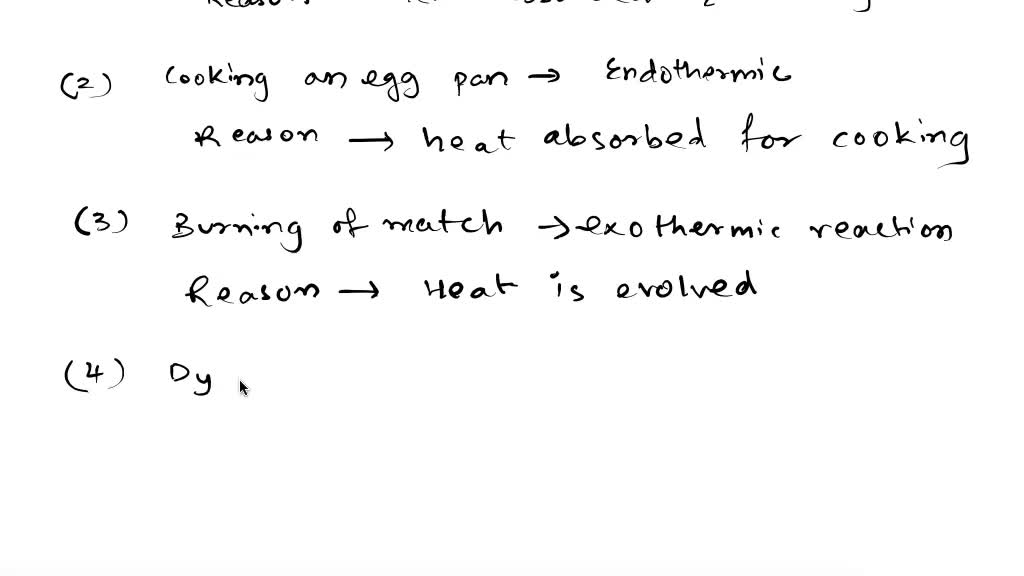 (2) Cooking an egg pan → Endothermic
Reason → heat absorbed for cooking
(3) Burning of match → exothermic reaction
Reason → Heat is evolved
(4) Dy